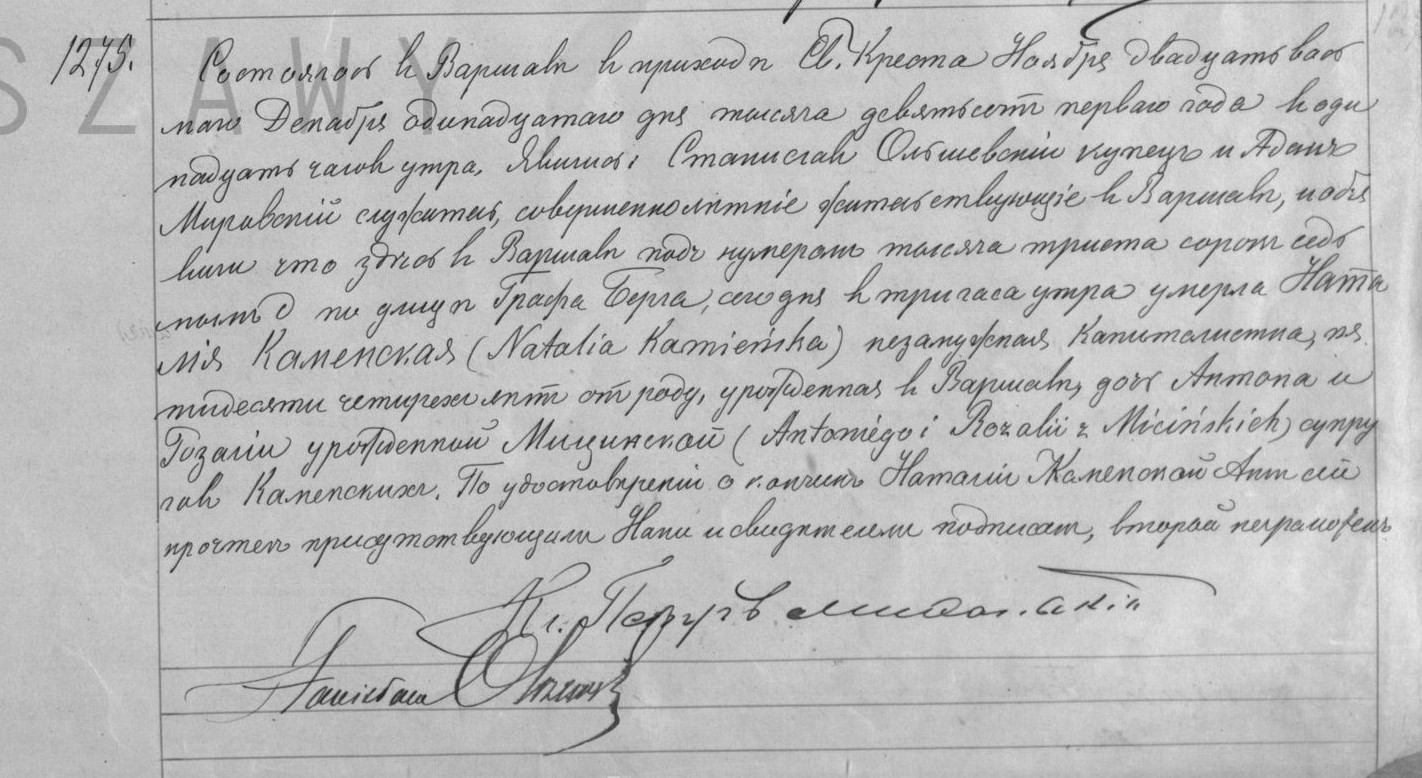 SZAWY
1275.
Состоялось въ Варшавѣ въ приходѣ Св. Креста Ноября двадцать вось
маго Декабря одинадцатаго дня тысяча девятьсотъ перваго года въ оди
надцать часовъ утра. Явились Станиславъ Ольшевскій купецъ и Адамъ
Мировскій служитель, совершеннолѣтніе жительствующіе въ Варшавѣ, и объя
вили что здѣсь въ Варшавѣ подъ нумеромъ тысяча триста сорокъ седь
мымъ D по улицѣ Графа Берга, сегодня въ три часа утра умерла Ната
лія Каменская (Natalia Kamieńska) незамужная Капиталистка, пя
тидесяти четырехъ лѣтъ отъ роду, урожденная въ Варшавѣ, дочь Антона и
Розаліи урожденной Мицинской (Antoniego i Rozalii z Micińskich) супру
говъ Каменскихъ. По удостовѣреніи о кончинѣ Наталіи Каменской Актъ сей
прочтенъ присутствующимъ Нами и свидѣтелемъ подписанъ, второй неграмотенъ
Кс. Петръ
Stanisław